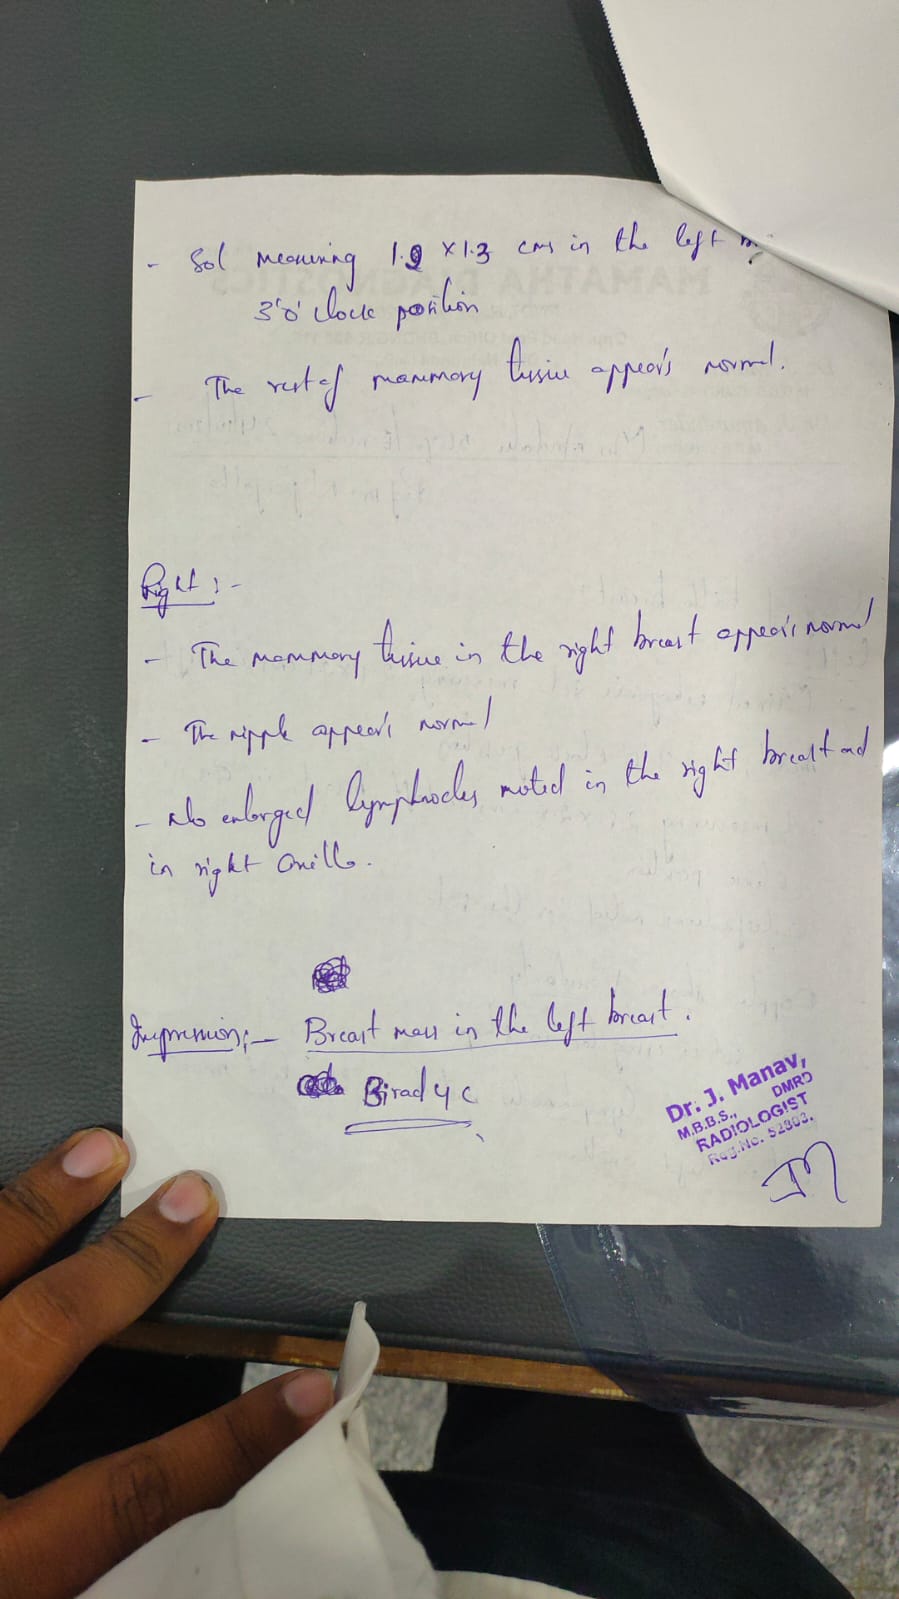 - Sol measuring 1.9 x 1.3 cms in the left
3'o'clock position
- The rest of mammary tissue appears normal.
Right :-
- The mammary tissue in the right breast appears normal
- The nipple appears normal
- No enlarged lymphnodes noted in the right breast and
in right axilla.
Impression:- Breast mass in the left breast.
Birad 4c
Dr. J. Manav,
M.B.B.S., DMRD
RADIOLOGIST
Reg.No. 52303.